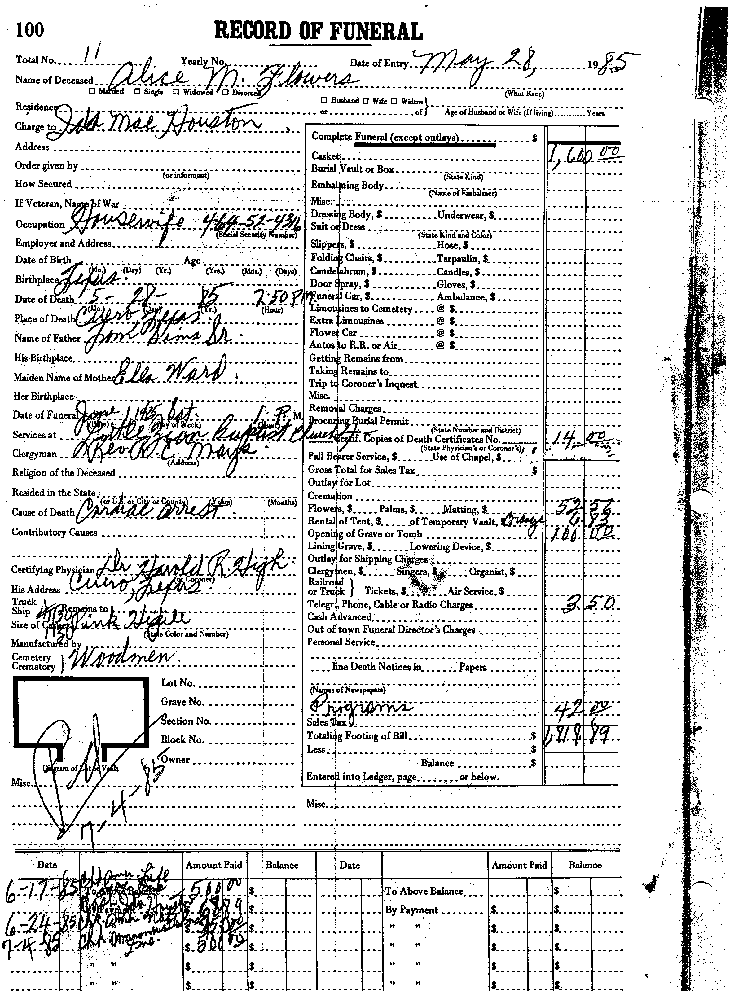 100 RECORD OF FUNERAL
Total No. 11 Yearly No. Date of Entry May 28, 1985
Name of Deceased Alice M. Flowers
☐ Married ☐ Single ☐ Widowed ☐ Divorced (What Race)
Residence ☐ Husband ☐ Wife ☐ Widow
or of Age of Husband or Wife (If living) Years
Charge to Ida Mae Houston
Address
Order given by
(or informant)
How Secured
If Veteran, Name of War
Occupation Housewife
(Social Security Number)
Employer and Address
Date of Birth Age
(Mo.) (Day) (Yr.) (Yrs.) (Mos.) (Days)
Birthplace Texas
Date of Death 5-28-85 2:50 P.M.
(Yr.) (Hour)
Place of Death Cuero Texas
Name of Father Sims Sr
His Birthplace
Maiden Name of Mother Ella Ward
Her Birthplace
Date of Funeral June 1 1985 Sat. 1 P. M.
Services at Baptist Church
Clergyman Rev R C Mays
(Address)
Religion of the Deceased
Resided in the State
(or U.S. or City or County) (Years) (Months)
Cause of Death Cardiac arrest
Contributory Causes
Certifying Physician Dr Harold R High
(or Coroner)
His Address Cuero Texas
Truck
Ship Remains to
Size of Pink
(State Color and Number)
Manufactured by
Cemetery
Crematory Woodmen
Lot No.
Grave No.
Section No.
Block No.
Owner
(Diagram of Lot or Vault)
Pd 7-4-85
Misc.
Complete Funeral (except outlays) $ 1,600 00
Casket
Burial Vault or Box
(State Kind)
Embalming Body
(Name of Embalmer)
Misc.
Dressing Body, $ Underwear, $
Suit or Dress
(State Kind and Color)
Slippers, $ Hose, $
Folding Chairs, $ Tarpaulin, $
Candelabrum, $ Candles, $
Door Spray, $ Gloves, $
Funeral Car, $ Ambulance, $
Limousines to Cemetery @ $
Extra Limousines @ $
Flower Car @ $
Autos to R.R. or Air @ $
Getting Remains from
Taking Remains to
Trip to Coroner's Inquest
Misc.
Removal Charges
Procuring Burial Permit
(State Number and District)
Certif. Copies of Death Certificates No. 14 00
(State Physician's or Coroner's)
Pall Bearer Service, $ Use of Chapel, $
Gross Total for Sales Tax $
Outlay for Lot
Cremation
Flowers, $ Palms, $ Matting, $ 52 56
Rental of Tent, $ of Temporary Vault, $ 6 83
Opening of Grave or Tomb 100 00
Lining Grave, $ Lowering Device, $
Outlay for Shipping Charges
Clergymen, $ Singers, $ Organist, $
Railroad
or Truck Tickets, $ Air Service, $
Telegr., Phone, Cable or Radio Charges 3 50
Cash Advanced
Out of town Funeral Director's Charges
Personal Service
Line Death Notices in Papers
(Names of Newspapers)
Programs 42 00
Sales Tax
Totaling Footing of Bill $ 1,818 89
Less $
Balance $
Entered into Ledger, page or below.
Misc.
Date Amount Paid Balance Date Amount Paid Balance
6-17-85 500 00 $ To Above Balance $
$ By Payment $ $
6-24-85 $ " " $ $
7-4-85 500 00 $ " " $ $
" " $ $ " " $ $
" " $ $ " " $ $